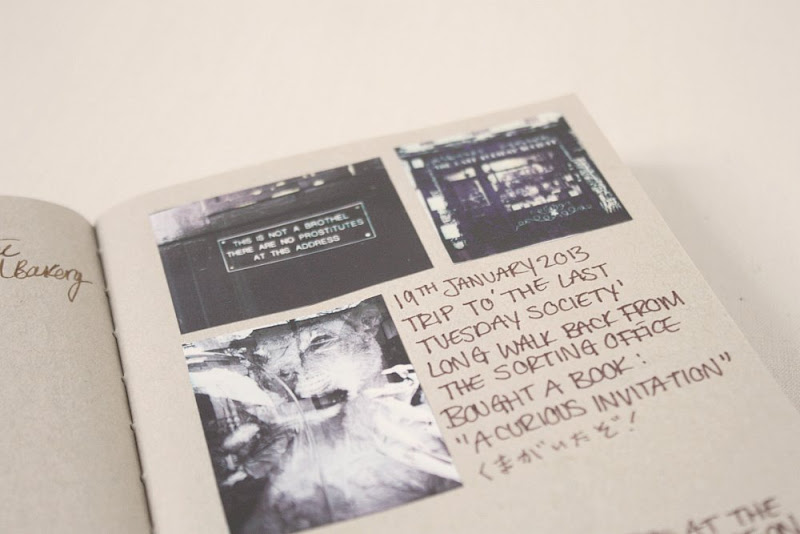 Bakery
THIS IS NOT A BROTHEL
THERE ARE NO PROSTITUTES
AT THIS ADDRESS
THE LAST TUESDAY SOCIETY
19TH JANUARY 2013
TRIP TO 'THE LAST
TUESDAY SOCIETY'
LONG WALK BACK FROM
THE SORTING OFFICE
BOUGHT A BOOK:
"A CURIOUS INVITATION"
くまがいたぞ!
AT THE